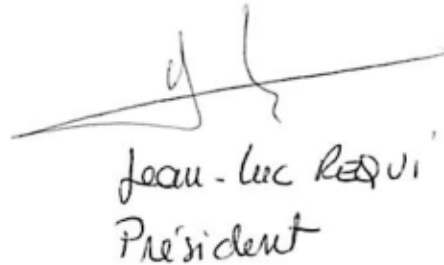 Jean-Luc REQUI
Président